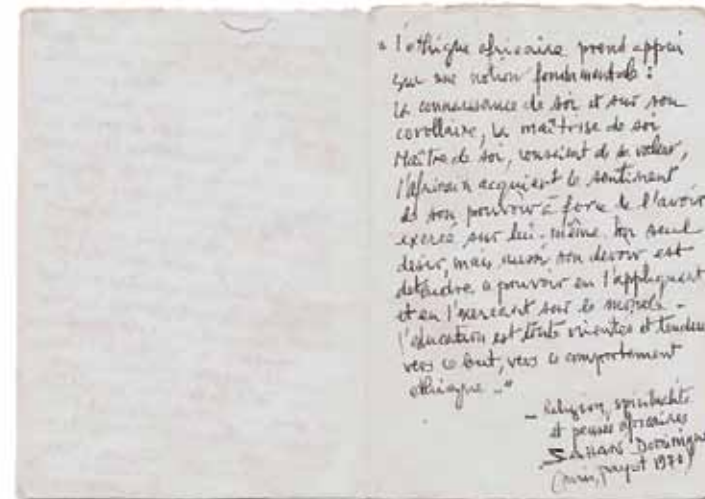 « l'éthique africaine prend appui
sur une notion fondamentale :
la connaissance de soi et sur son
corollaire, la maîtrise de soi
Maître de soi, conscient de sa valeur,
l'africain acquiert le sentiment
de son pouvoir à force de l'avoir
exercé sur lui-même. Son seul
désir, mais aussi son devoir est
d'étendre ce pouvoir en l'appliquant
et en l'exerçant sur le monde -
l'éducation est toute orientée et tendue
vers ce but, vers ce comportement
éthique .. »
- Religion, spiritualité
et pensée africaines
Dominique
(Paris, payot 1970)